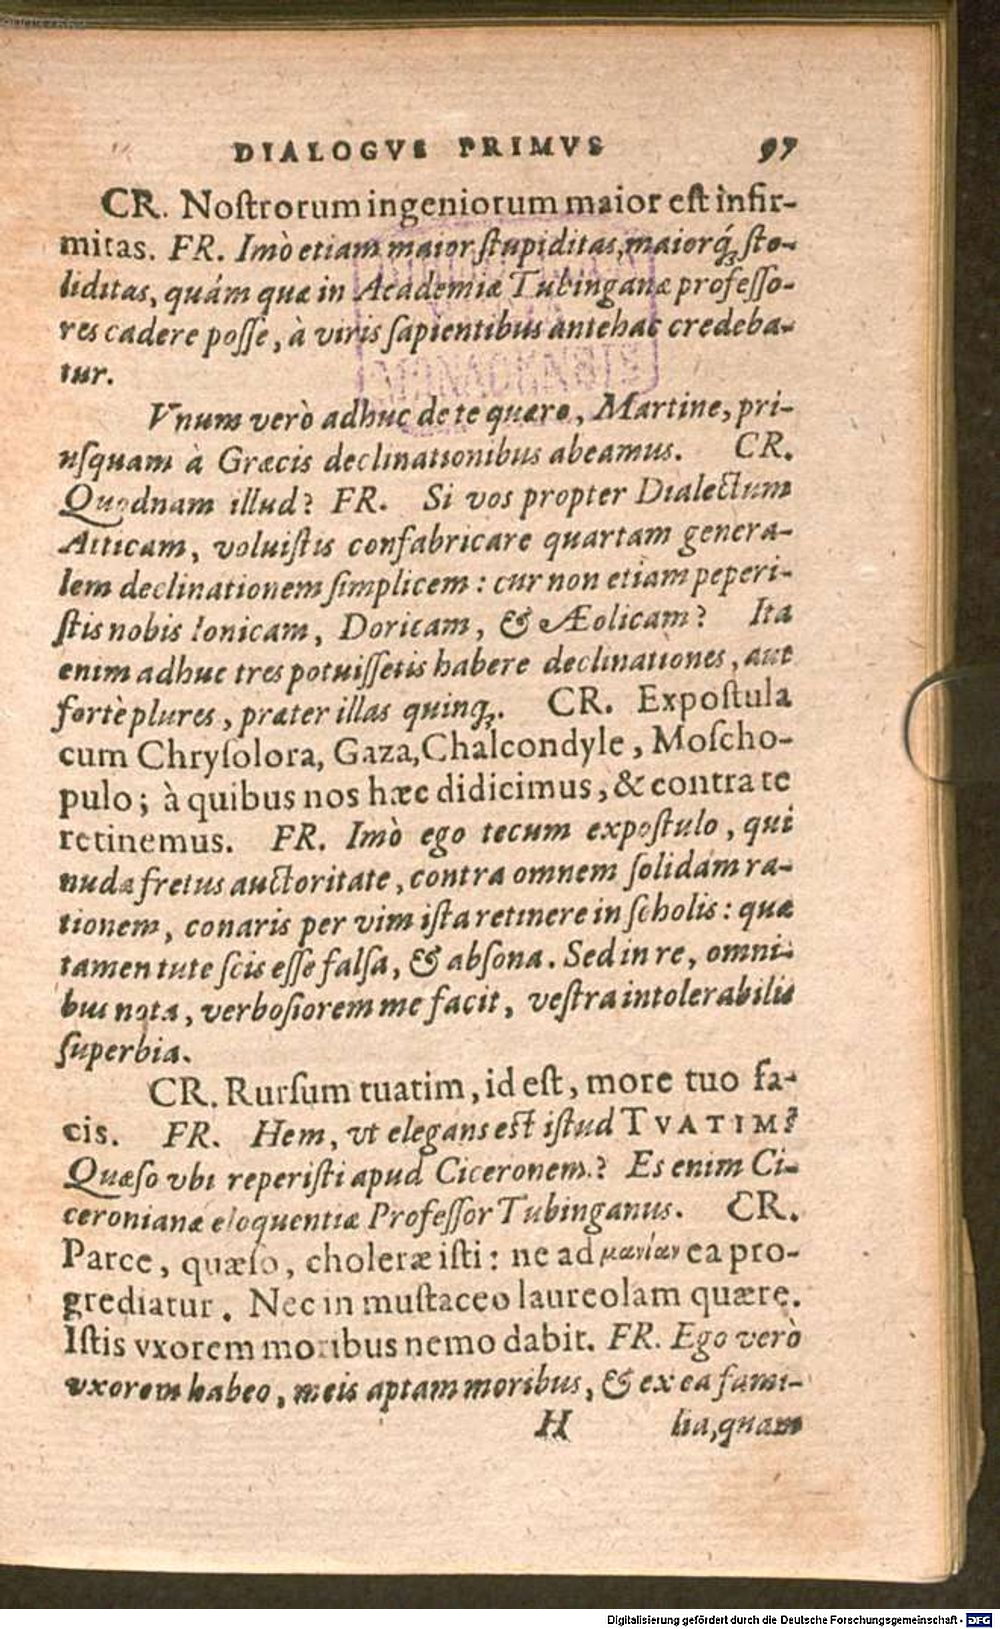 DIALOGVS PRIMVS 97
CR. Noſtrorum ingeniorum maior eſt infir-
mitas. FR. Imò etiam maior ſtupiditas, maiorq́; ſto-
liditas, quám quæ in Academiæ Tubinganæ profeſſo-
res cadere poſſe, à viris ſapientibus antehac credeba-
tur.
Vnum verò adhuc de te quæro, Martine, pri-
uſquam à Græcis declinationibus abeamus. CR.
Quodnam illud? FR. Si vos propter Dialectum
Atticam, voluiſtis confabricare quartam genera-
lem declinationem ſimplicem: cur non etiam peperi-
ſtis nobis Ionicam, Doricam, & Æolicam? Ita
enim adhuc tres potuiſſetis habere declinationes, aut
fortè plures, præter illas quinq;. CR. Expoſtula
cum Chryſolora, Gaza, Chalcondyle, Moſcho-
pulo; à quibus nos hæc didicimus, & contra te
retinemus. FR. Imò ego tecum expoſtulo, qui
nuda fretus auctoritate, contra omnem ſolidam ra-
tionem, conaris per vim iſta retinere in ſcholis: quæ
tamen tute ſcis eſſe falſa, & abſona. Sed in re, omni-
bus nota, verboſiorem me facit, veſtra intolerabilis
ſuperbia.
CR. Rurſum tuatim, id eſt, more tuo fa-
cis. FR. Hem, vt elegans eſt iſtud TVATIM?
Quæſo vbi reperiſti apud Ciceronem? Es enim Ci-
ceronianæ eloquentiæ Profeſſor Tubinganus. CR.
Parce, quæſo, choleræ iſti: ne ad μανίαν ea pro-
grediatur. Nec in muſtaceo laureolam quære.
Iſtis vxorem moribus nemo dabit. FR. Ego verò
vxorem habeo, meis aptam moribus, & ex ea fami-
H lia, quam
Digitalisierung gefördert durch die Deutsche Forschungsgemeinschaft - DFG